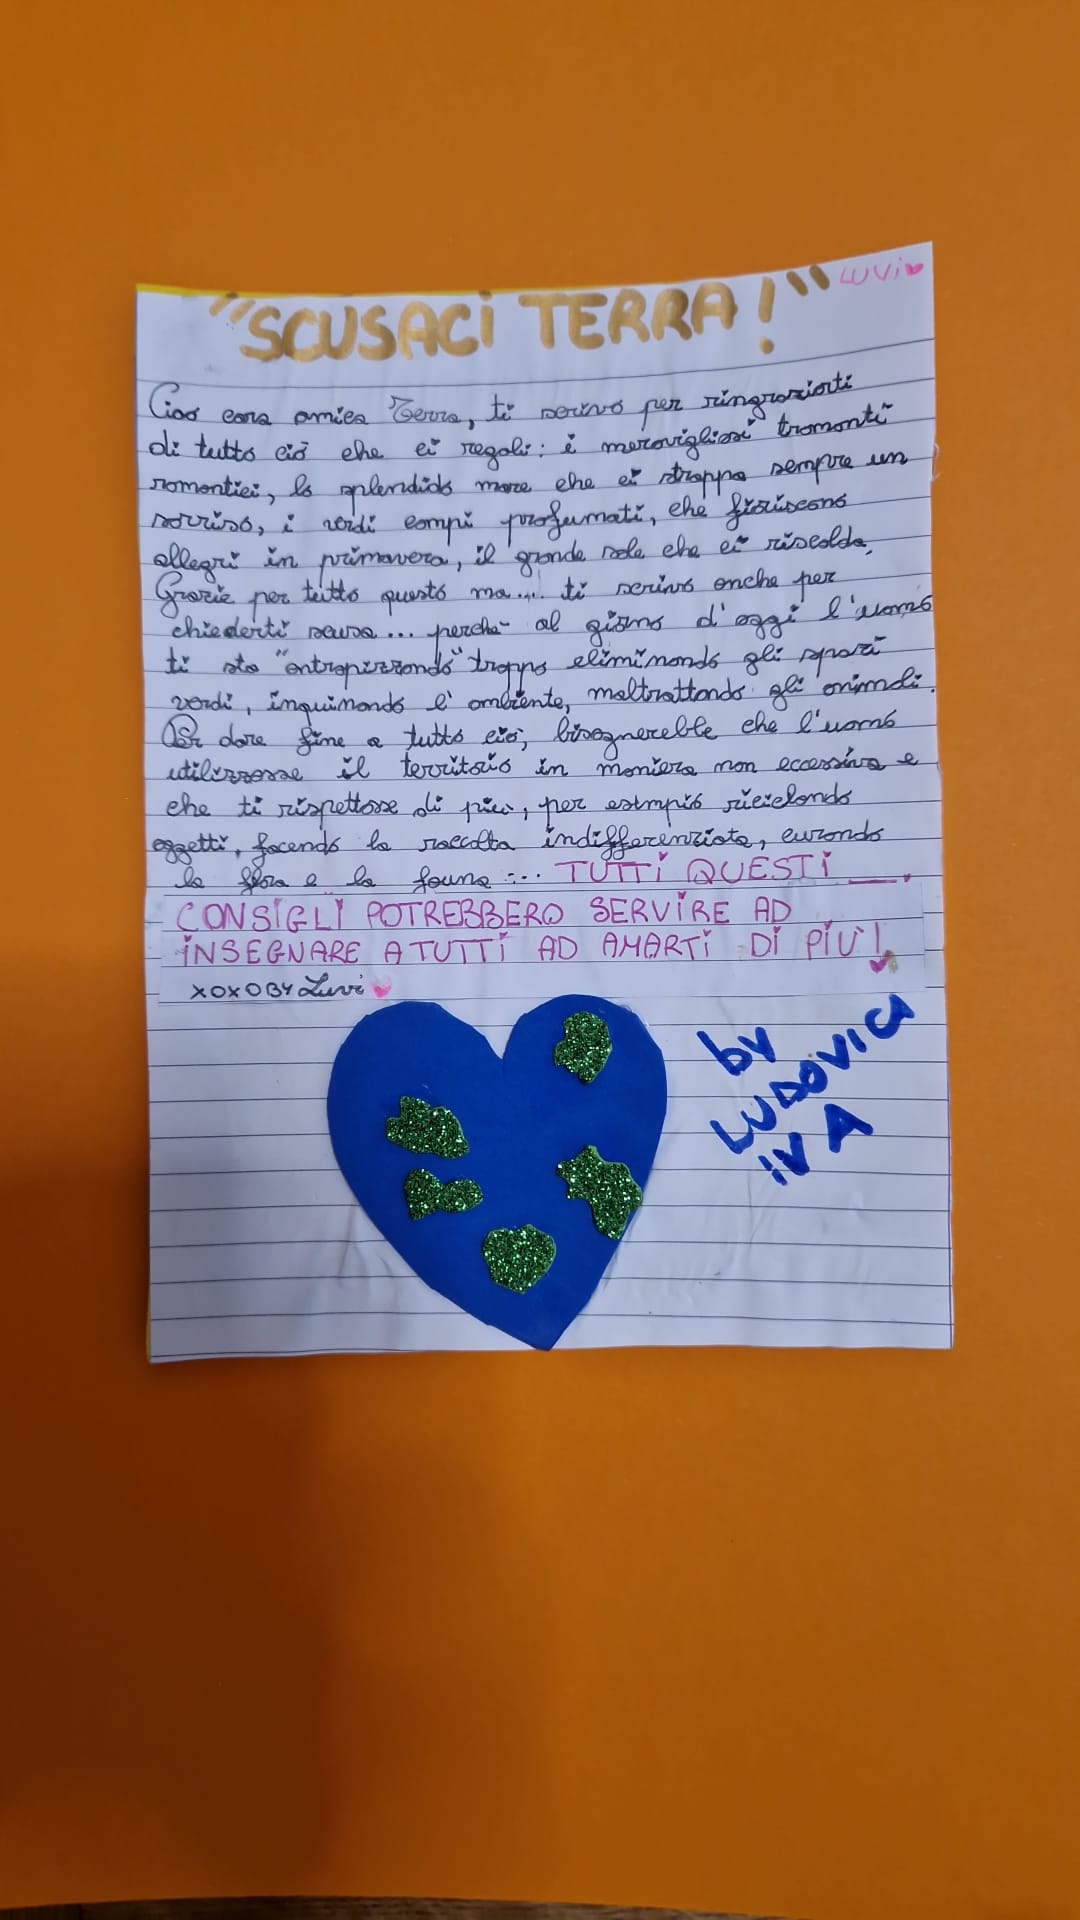 "SCUSACI TERRA!"
LUVI
Ciao cara amica Terra, ti scrivo per ringraziarti
di tutto ciò che ci regali: i meravigliosi tramonti
romantici, lo splendido mare che ci strappa sempre un
sorriso, i verdi campi profumati, che fioriscono
allegri in primavera, il grande sole che ci riscalda.
Grazie per tutto questo ma.... ti scrivo anche per
chiederti scusa... perché al giorno d'oggi l'uomo
ti sta "antropizzando" troppo eliminando gli spazi
verdi, inquinando l'ambiente, maltrattando gli animali.
Per dare fine a tutto ciò, bisognerebbe che l'uomo
utilizzasse il territorio in maniera non eccessiva e
che ti rispettasse di più, per esempio riciclando
oggetti, facendo la raccolta indifferenziata, curando
la flora e la fauna... TUTTI QUESTI
CONSIGLI POTREBBERO SERVIRE AD
INSEGNARE A TUTTI AD AMARTI DI PIÙ!
XOXO BY Luvi
by
LUDOVICA
IV A